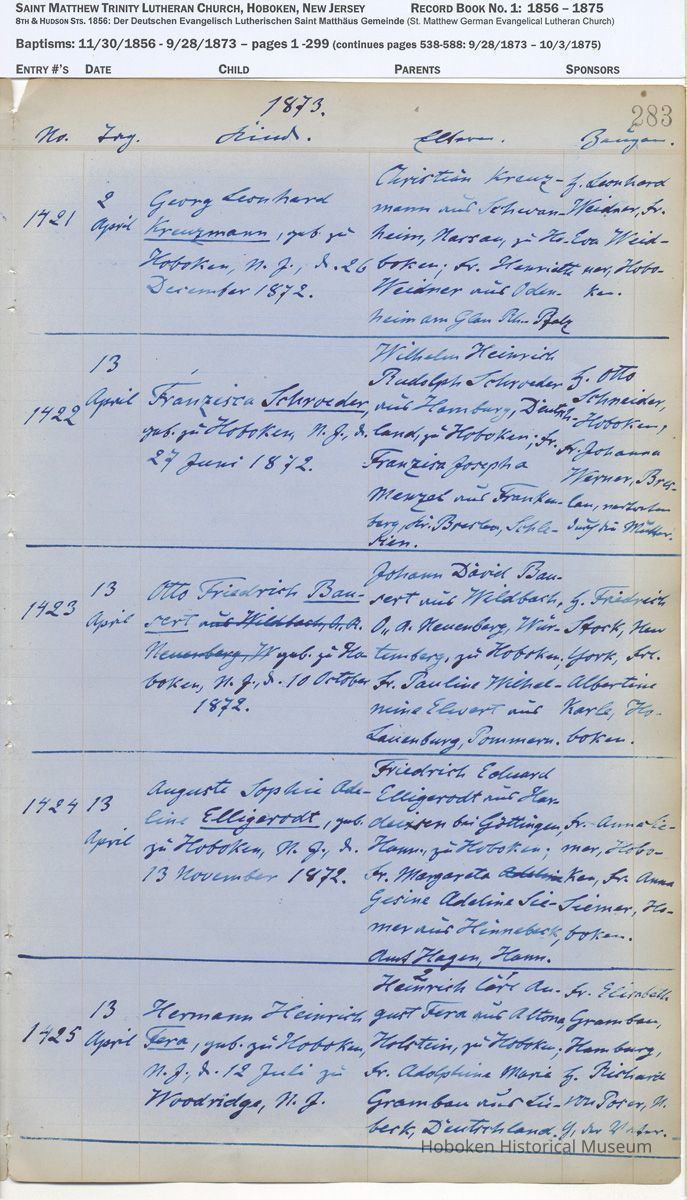 SAINT MATTHEW TRINITY LUTHERAN CHURCH, HOBOKEN, NEW JERSEY RECORD BOOK NO. 1: 1856 – 1875
8TH & HUDSON STS. 1856: Der Deutschen Evangelisch Lutherischen Saint Matthäus Gemeinde (St. Matthew German Evangelical Lutheran Church)
Baptisms: 11/30/1856 - 9/28/1873 – pages 1 -299 (continues pages 538-588: 9/28/1873 – 10/3/1875)
ENTRY #'S DATE CHILD PARENTS SPONSORS
1873.
283
No. Tag. Kind. Eltern. Zeugen.
1421
2
April
Georg Leonhard
Kreuzmann, geb. zu
Hoboken, N. J., d. 26
December 1872.
Christian Kreuz-
mann aus Schwan-
heim, Nassau, zu Ho-
boken; Fr. Henriette
Weidner aus Oden-
heim am Glan Rh. Pfalz
H. Leonhard
Weidner, Fr.
Eva Weid-
ner, Hobo-
ken.
1422
13
April
Franzisca Schroeder,
geb. zu Hoboken, N. J., d.
27 Juni 1872.
Wilhelm Heinrich
Rudolph Schroeder
aus Hamburg, Deutsch-
land, zu Hoboken; Fr.
Franzisca Josepha
Menzel aus Franken-
berg, Kr. Breslau, Schle-
sien.
H. Otto
Schneider,
Hoboken,
Fr. Johanna
Werner, Bres-
lau, vertreten
durch die Mutter.
1423
13
April
Otto Friedrich Bau-
sert aus Wildbach, O. A.
Neuenberg, W geb. zu Ho-
boken, N. J., d. 10 October
1872.
Johann David Bau-
sert aus Wildbach,
O. A. Neuenberg, Wür-
temberg, zu Hoboken;
Fr. Pauline Wilhel-
mine Elwert aus
Lauenburg, Pommern.
H. Friedrich
Stock, New
York, Frl.
Albertine
Karle, Ho-
boken.
1424
13
April
Auguste Sophie Ade-
line Elligerodt, geb.
zu Hoboken, N. J., d.
13 November 1872.
Friedrich Eduard
Elligerodt aus Har-
deissen bei Göttingen,
Hann., zu Hoboken;
Fr. Margareta Adeline
Gesine Adeline Sie-
mer aus Hinnebeck,
Amt Hagen, Hann.
Fr. Anna Sie-
mer, Hobo-
ken, Fr. Anna
Siemer, Ho-
boken.
1425
13
April
Hermann Heinrich
Fera, geb. zu Hoboken,
N. J., d. 12 Juli zu
Woodridge, N. J.
Heinrich Carl Au-
gust Fera aus Altona
Holstein, zu Hoboken;
Fr. Adolphine Marie
Grambau aus Lü-
beck, Deutschland.
Fr. Elisabeth
Grambau,
Hamburg,
H. Richard
von Poser, N.
Y., der Vater.
Hoboken Historical Museum